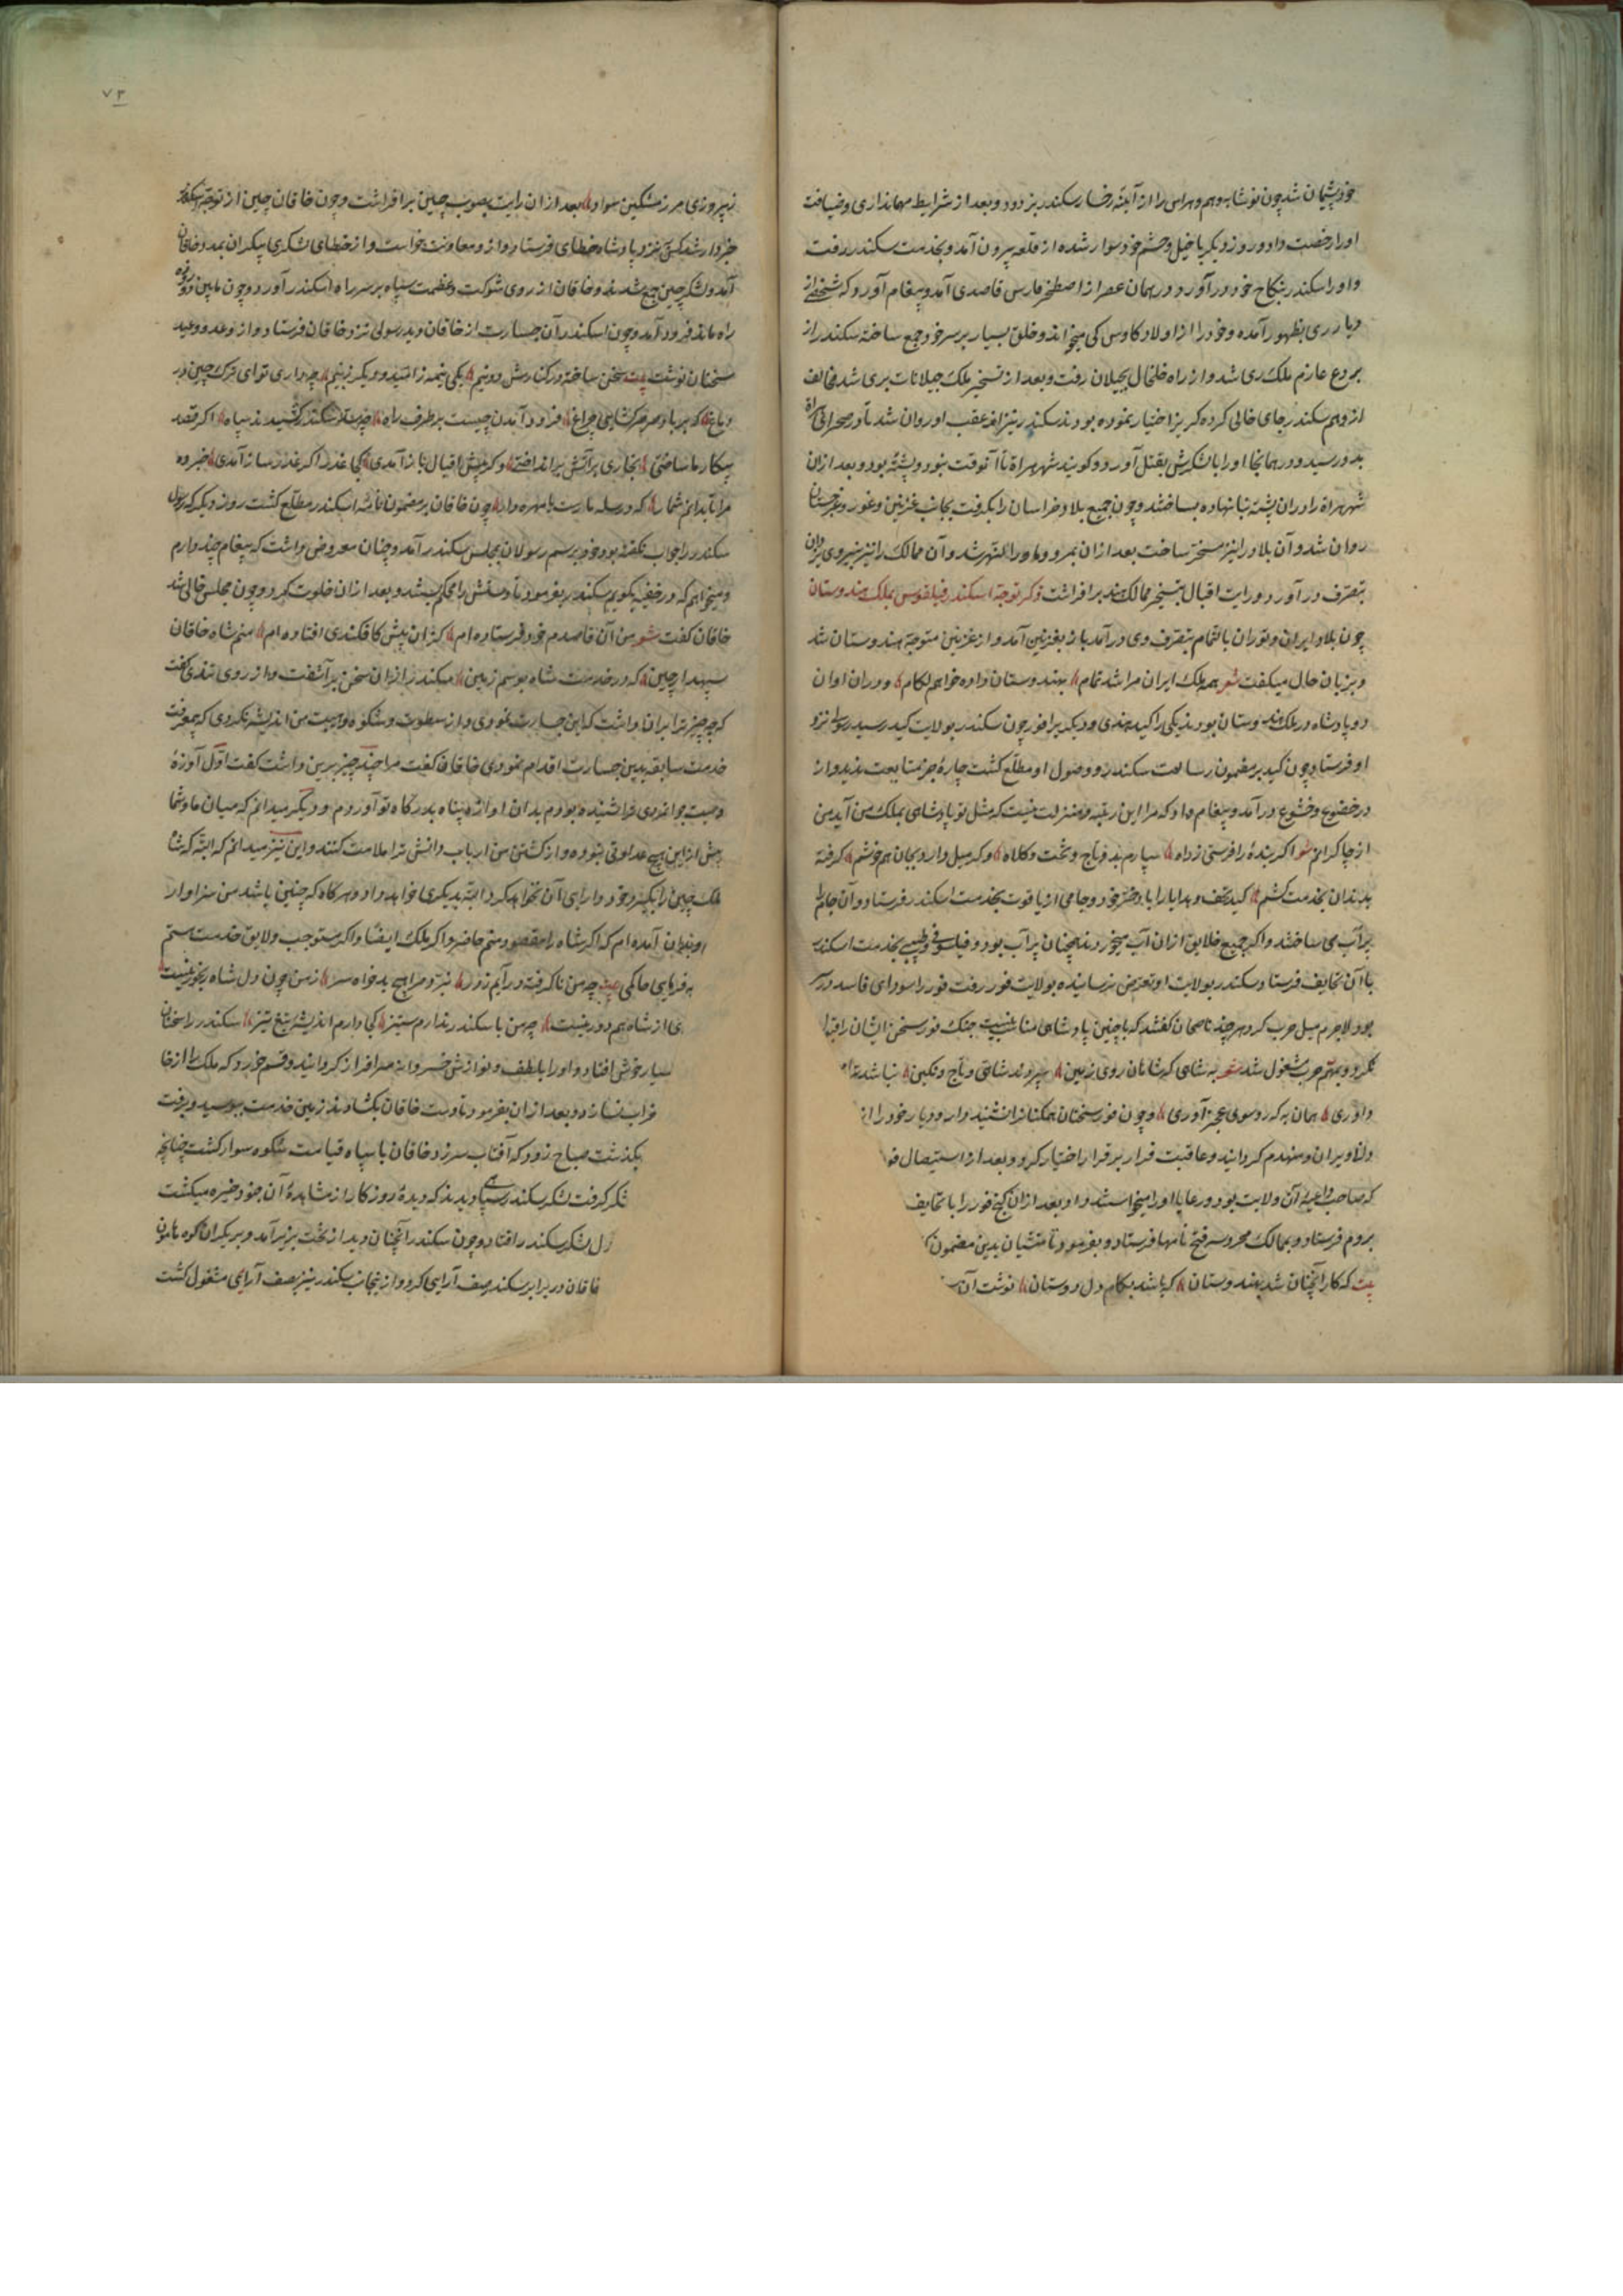 خود پشیمان شد چون نوشابه وهم و هراس را از آینهٔ رخسار سکندر بزدود و بعد از شرایط مهمانداری و ضیافت
او را رخصت داد و روز دیگر با خیل و حشم خود سوار شده از قلعه بیرون آمد و بخدمت سکندر رفت
و او را سکندر بنکاح خود در آورد و در همان عصر از اصطخر فارس قاصدی آمد و پیغام آورد که شخصی از
دیار ری بظهور آمده و خود را از اولاد کاوس کی میخواند و خلق بسیار بر سر خود جمع ساخته سکندر از
بردع عازم ملک ری شد و از راه خلخال بجیلان رفت و بعد از تسخیر ملک جیلانات بری شد مخالف
از وهم سکندر جای خالی کرده گریز اختیار نموده بود سکندر نیز از عقب او روان شد تا در صحرای هراة
بدو رسید و در همانجا او را با لشکرش بقتل آورد و گویند شهر هراة تا آنوقت نبود و پشته بود و بعد از آن
شهر هراة را در آن پشته بنا نهاده بساختند و چون جمیع بلاد خراسان را بگرفت بجانب غزنین و غور و غرجستان
روان شد و آن بلاد را نیز مسخر ساخت بعد از آن بمرو و ماوراء النهر شد و آن ممالک را نیز بنیروی یزدان
بتصرف در آورد و رایت اقبال بتسخیر ممالک هند برافراشت ذکر توجه اسکندر فیلقوس بملک هندوستان
چون بلاد ایران و توران بالتمام بتصرف وی در آمد باز بغزنین آمد و از غزنین متوجه هندوستان شد
و بزبان حال میگفت شعر همه ملک ایران مرا شد تمام بهندوستان داد خواهم لگام و در آن اوان
دو پادشاه در ملک هندوستان بودند یکی را کید هندی و دیگر برا فور چون سکندر بولایت کید رسید رسولی نزد
او فرستاد چون کید بر مضمون رسالت سکندر و وصول او مطلع گشت چاره جز متابعت ندید و از
در خضوع و خشوع در آمد و پیغام داد که مرا این رتبه و منزلت نیست که مثل تو پادشاهی بملک من آید من
از چاکرانم شعر اگر بندهٔ را فرستی ز راه سپارم بدو تاج و تخت و کلاه و گر میل دارد بجان هم خوشم گرفته
بدندان بخدمت کشم کید تحف و هدایا را با دختر خود و جامی از یاقوت بخدمت سکندر فرستاد و آن جام را
پر آب می ساختند و اگر جمیع خلایق از آن آب میخوردند همچنان پر آب بود و فیلسوفی و طبیبی بخدمت اسکندر
با آن تحایف فرستاد و سکندر بولایت او تعرض نرسانیده بولایت فور رفت فور را سودای فاسد در سر
بود لاجرم میل حرب کرد و هر چند ناصحان گفتند که با چنین پادشاهی مناسب نیست جنک فور سخن ایشان را قبول
نکرد و بمهم حرب مشغول شد شعر به شاهی که شاهان روی زمین سپردند شاهی و تاج و نگین نباشد ترا
داوری همان به که رو سوی عجز آوری و چون فور سخنان همکنان نشنید دار و دیار خود را از
ویران و منهدم گردانید و عاقبت فرار بر قرار اختیار کرد و بعد از استیصال فور
که صاحب داعیهٔ آن ولایت بود و رعایا او را میخواستند داد و بعد از آن گنج فور را با تحایف
بروم فرستاد و بممالک محروسه فتح نامها فرستاد و بفرمود تا منشیان بدین مضمون
بیت که کار آنچنان شد بهندوستان که باشد بکام دل دوستان نوشت آن
ز پیروزی مرز مشکین سواد بعد از آن رایت بصوب چین برافراشت و چون خاقان چین از توجه سکندر
خبردار شد کس نزد پادشاه خطای فرستاد و از و معاونت خواست و از خطای لشکری بیکران بمدد خاقان
آمد و لشکر چین جمع شدند و خاقان از روی شوکت و عظمت سپاه بر سر راه اسکندر آورد و چون مابین دو روزه
راه ماند فرود آمد و چون اسکندر آن جسارت از خاقان دید رسولی نزد خاقان فرستاد و از وعد و وعید
سخنان نوشت بیت
پیکار ما ساختی
مرا تا بدانم شمار که در سله مارست یا مهره دار چون خاقان بر مضمون نامهٔ اسکندر مطلع گشت روز دیگر که رسول
سکندر را جواب نگفته بود خود برسم رسولان بمجلس سکندر آمد و چنان معروض داشت که پیغام چند دارم
و میخواهم که در خفیه بگویم سکندر بفرمود تا دستش را محکم ببستند و بعد از آن خلوت کرد و چون مجلس خالی شد
خاقان گفت شعر من آن قاصدم خود فرستاده ام کز آن پیش کافکندی افتاده ام منم شاه خاقان
سپهدار چین که در خدمت شاه بوسم زمین سکندر از آن سخن برآشفت و از روی تندی گفت
که چه چیز ترا بران داشت که این جسارت نمودی و از سطوت و شکوه و هیبت من اندیشه نکردی که بی معرفت
خدمت سابقه بدین جسارت اقدام نمودی خاقان گفت مرا چند چیز برین داشت گفت اول آوازهٔ
وصیت جوانمردی ترا شنیده بودم بدان آوازه پناه بدرگاه تو آوردم و دیگر میدانم که میان ما و شما
پیش از این هیچ عداوتی نبوده و از کشتن من ارباب دانش ترا ملامت کنند و این نیز میدانم که البته که شاه
ملک چین را بگیرد خود دارایی آن نخواهد کرد البته بدیگری خواهد داد و هر گاه که چنین باشد من سزاوار
بدان آمده ام که اگر شاه را مقصود منم حاضر و اگر ملک ایضا و اگر مستوجب و لایق خدمت هستم
چه من ناگرفته در آیم ز در نبرد مرا هیچ بدخواه سر ز من چون دل شاه رنجور نیست
از شاه هم دور نیست چو من با سکندر ندارم ستیز کجا دارم اندیشه تیغ تیز سکندر را سخنان
بسیار خوش افتاد و او را بلطف و نوازش خسروانه سرافراز گردانید و قسم خورد که ملک
خراب نسازد و بعد از آن بفرمود تا دست خاقان بگشادند زمین خدمت ببوسید و برفت
بگذشت صباح زود که آفتاب سر زد خاقان با سپاه قیامت شکوه سوار گشت چنانچه
لشکر سکندر سپاهی دیدند که دیدهٔ روزگار از مشاهدهٔ آن جنود خیره میگشت
دل لشکر سکندر افتاد و چون سکندر آنچنان دید از تخت بزیر آمد و بر یکران کوه هامون
خاقان در برابر سکندر صف آرایی کرد و از آنجانب سکندر نیز بصف آرایی مشغول گشت